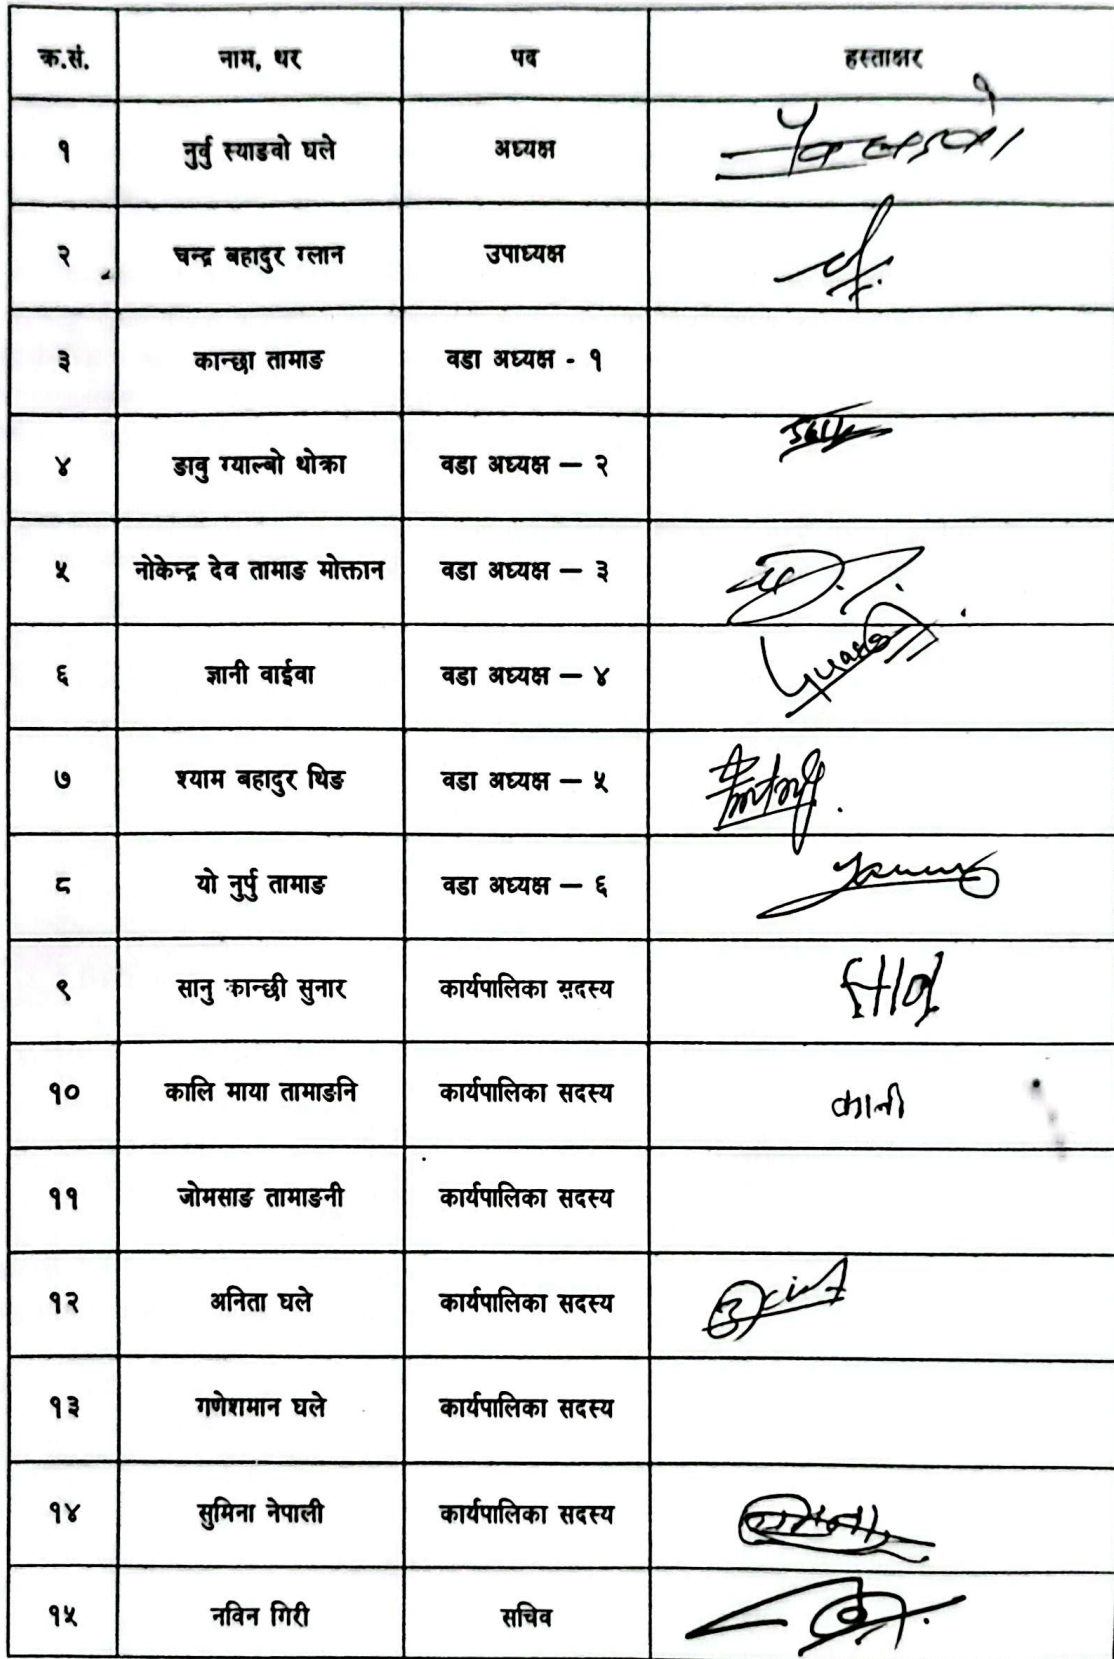 क्र.सं. नाम, थर पद हस्ताक्षर
१ नुर्वु स्याङवो घले अध्यक्ष
२ चन्द्र बहादुर ग्लान उपाध्यक्ष
३ कान्छा तामाङ वडा अध्यक्ष - १
४ ङावु ग्याल्बो थोक्रा वडा अध्यक्ष — २
५ नोकेन्द्र देव तामाङ मोक्तान वडा अध्यक्ष — ३
६ ज्ञानी वाईवा वडा अध्यक्ष — ४
७ श्याम बहादुर थिङ वडा अध्यक्ष — ५
८ यो नुर्पु तामाङ वडा अध्यक्ष — ६
९ सानु कान्छी सुनार कार्यपालिका सदस्य
१० कालि माया तामाङनि कार्यपालिका सदस्य कानी
११ जोमसाङ तामाङनी कार्यपालिका सदस्य
१२ अनिता घले कार्यपालिका सदस्य
१३ गणेशमान घले कार्यपालिका सदस्य
१४ सुमिना नेपाली कार्यपालिका सदस्य
१५ नविन गिरी सचिव